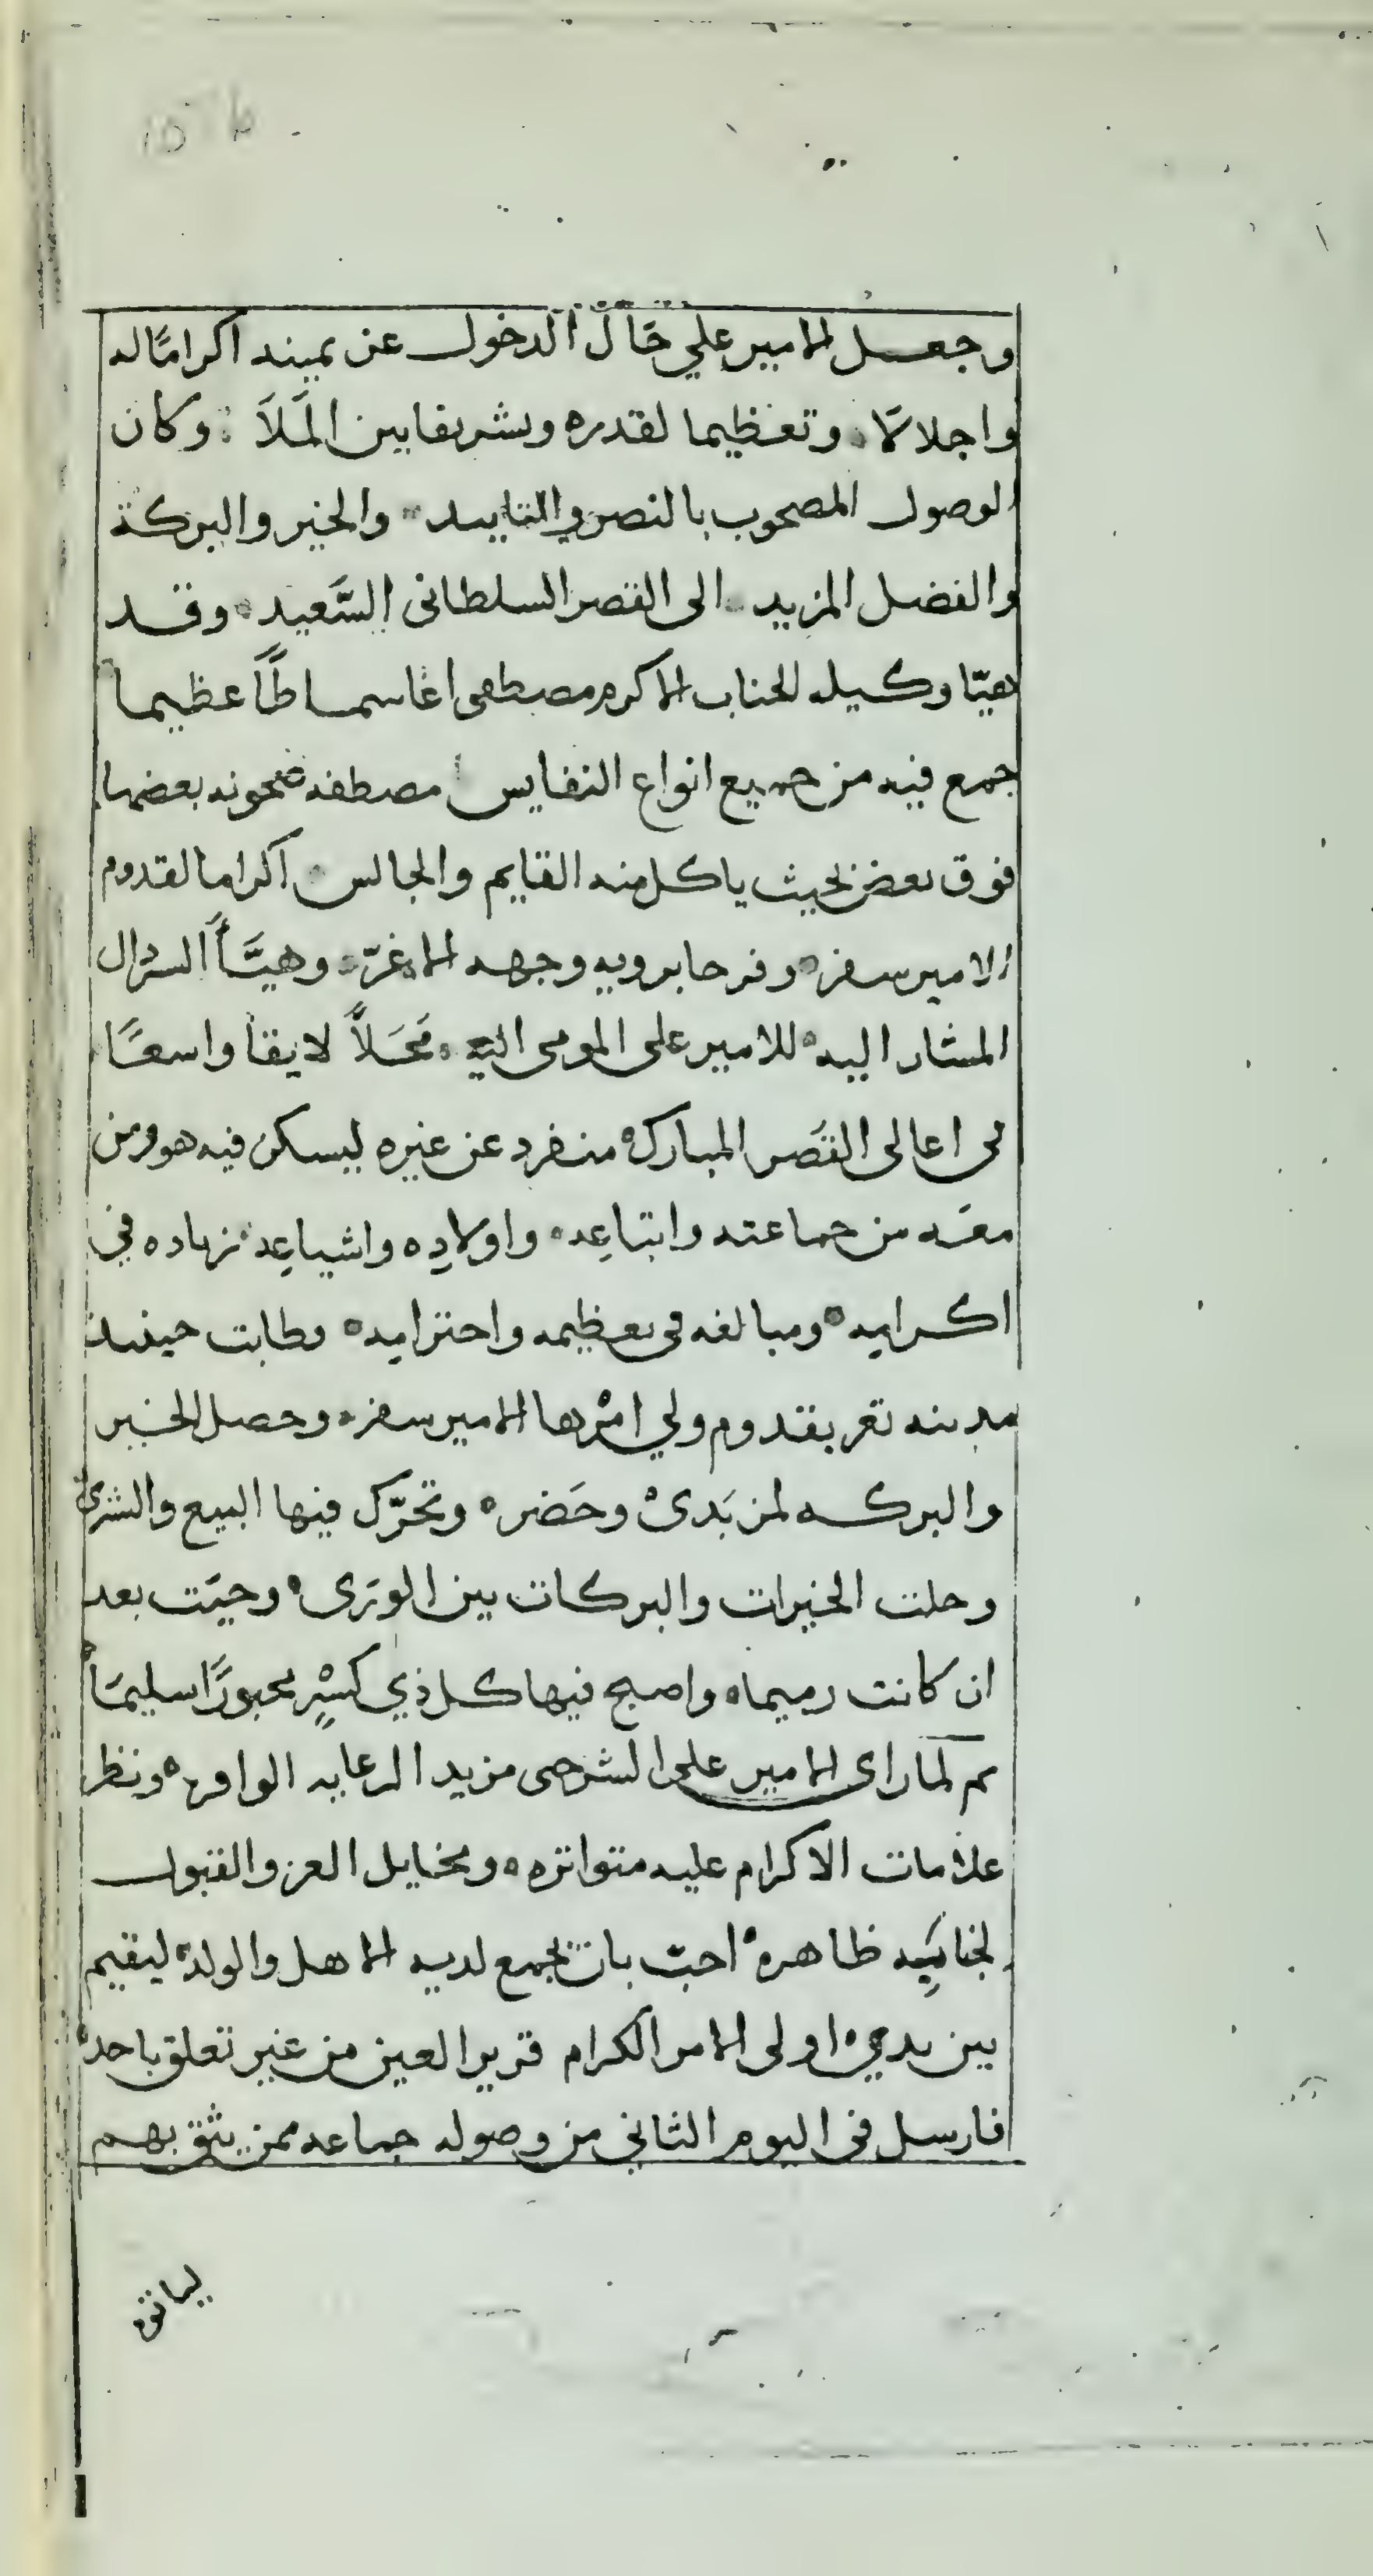 وجعل الامير علي حَال الدخول عن يمينه اكرامًا له
واجلالًا وتعظيما لقدره وتشريفا بين المَلَا وكان
الوصول المصحوب بالنصر والتاييد والخير والبركة
والفضل المزيد الى القصر السلطانى السَّعيد وقد
هيّا وكيله الجناب الاكرم مصطفى اغا سماطًا عظيما
جمع فيه من جميع انواع النفايس مصطفه صحونه بعضها
فوق بعض بحيث ياكل منه القايم والجالس اكراما لقدوم
الامير سفر وفرحا برويه وجهه الاغرّ وهيَّأ
المشار اليه للامير على المومى اليه مَحَلًّا لايقا واسعًا
فى اعالى القَصر المبارك منفرد عن غيره ليسكن فيه هو ومن
معَه من جماعته واتباعِه واولادِه واشياعِه زياده في
اكرامِه ومبالغه فى تعظيمه واحترامِه وطابت حينئذ
مدينه تعز بقدوم ولي امْرها الامير سفر وحصل الخير
والبركه لمن بَدىْ وحَضر وتحرّك فيها البيع والشرى
وحلت الخيرات والبركات بين الورَى وحيَت بعد
ان كانت رميما واصبح فيها كل ذي كسْرٍ مجبورًا سليمَا
ثم لما راى الامير على الشرجى مزيد الرعايه الوافره ونظر
علامات الاكرام عليه متواتره ومخايل العز والقبول
لجنابِه ظاهره احبّ بان يجمع لديه الاهل والولد ليقيم
بين يدي اولى الامر الكرام قرير العين من غير تعلق باحد
فارسل فى اليوم الثاني من وصوله جماعه ممن يثق بهم
لياتوه